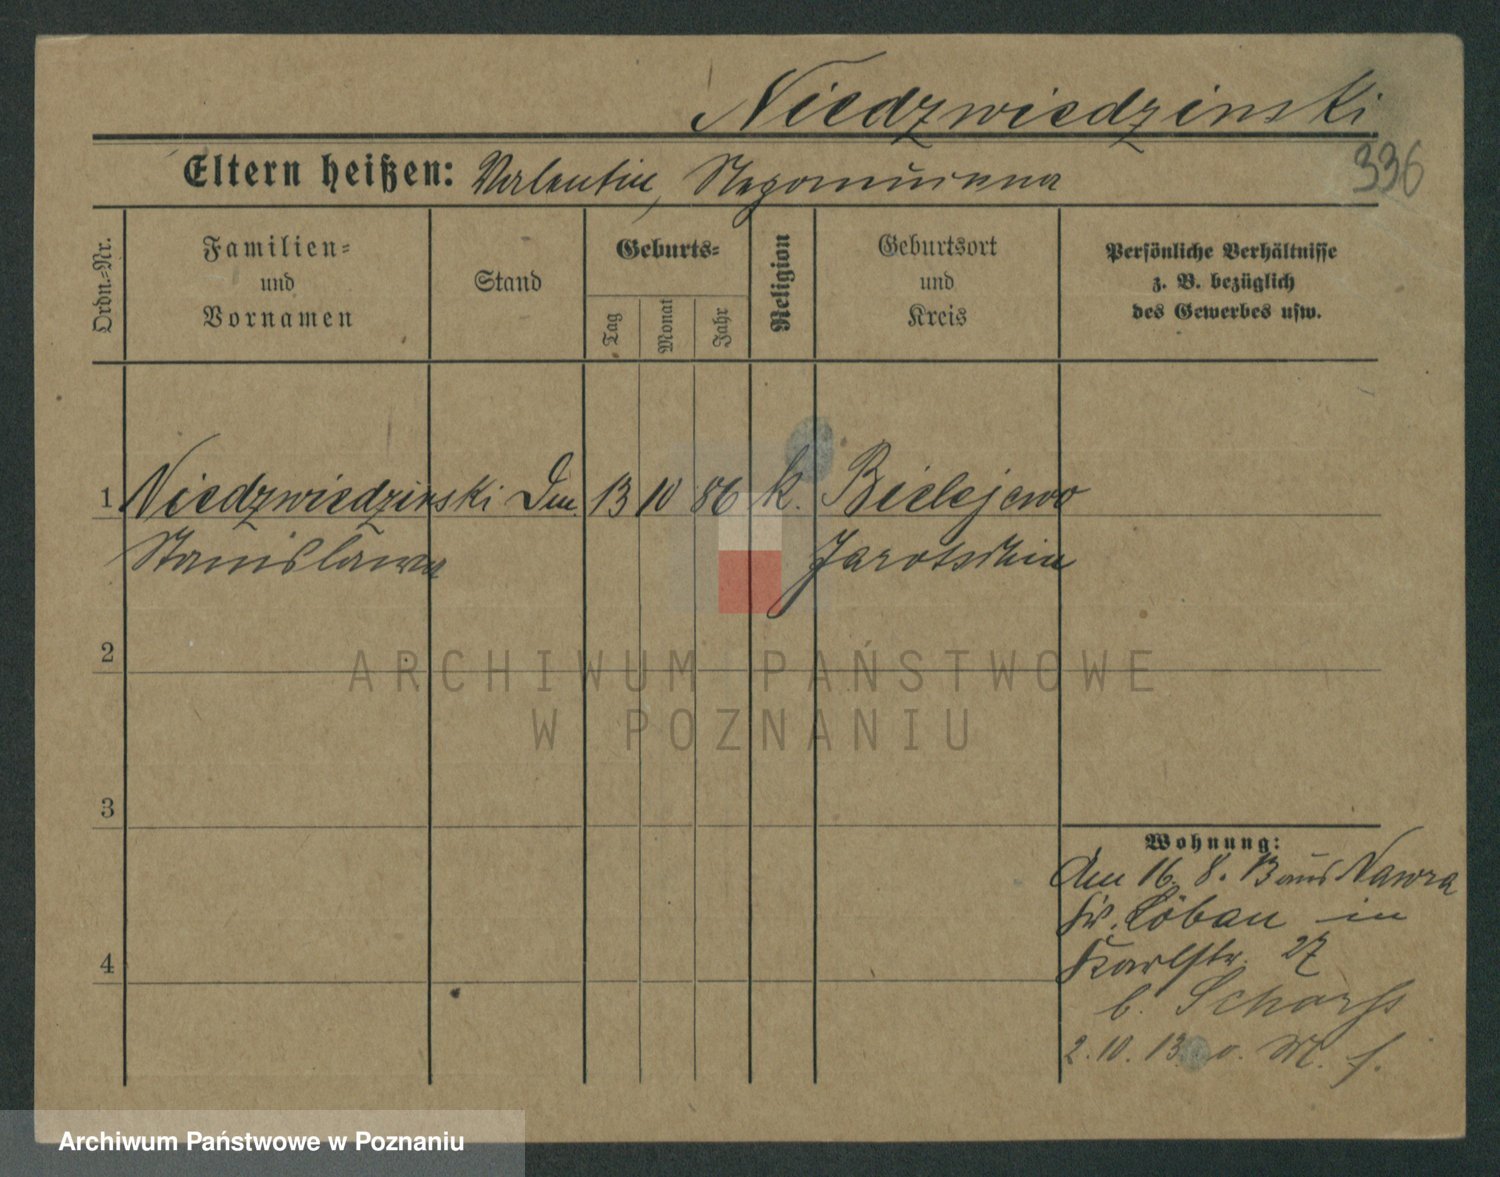 Niedzwiedzinski
Eltern heißen: Valentin, Nepomucena
336
Ordn.-Nr.
Familien-
und
Vornamen
Stand
Geburts-
Tag
Monat
Jahr
Religion
Geburtsort
und
Kreis
Persönliche Verhältnisse
z. B. bezüglich
des Gewerbes usw.
1 Niedzwiedzinski 13 10 86 k. Bielejewo
Stanislawa Jarotschin
2
3
4
Wohnung:
Am 16. 8. 13 aus Nawra
Kr. Löbau in
Karlstr. 27
b.
2.10.13
ARCHIWUM PAŃSTWOWE
W POZNANIU
Archiwum Państwowe w Poznaniu